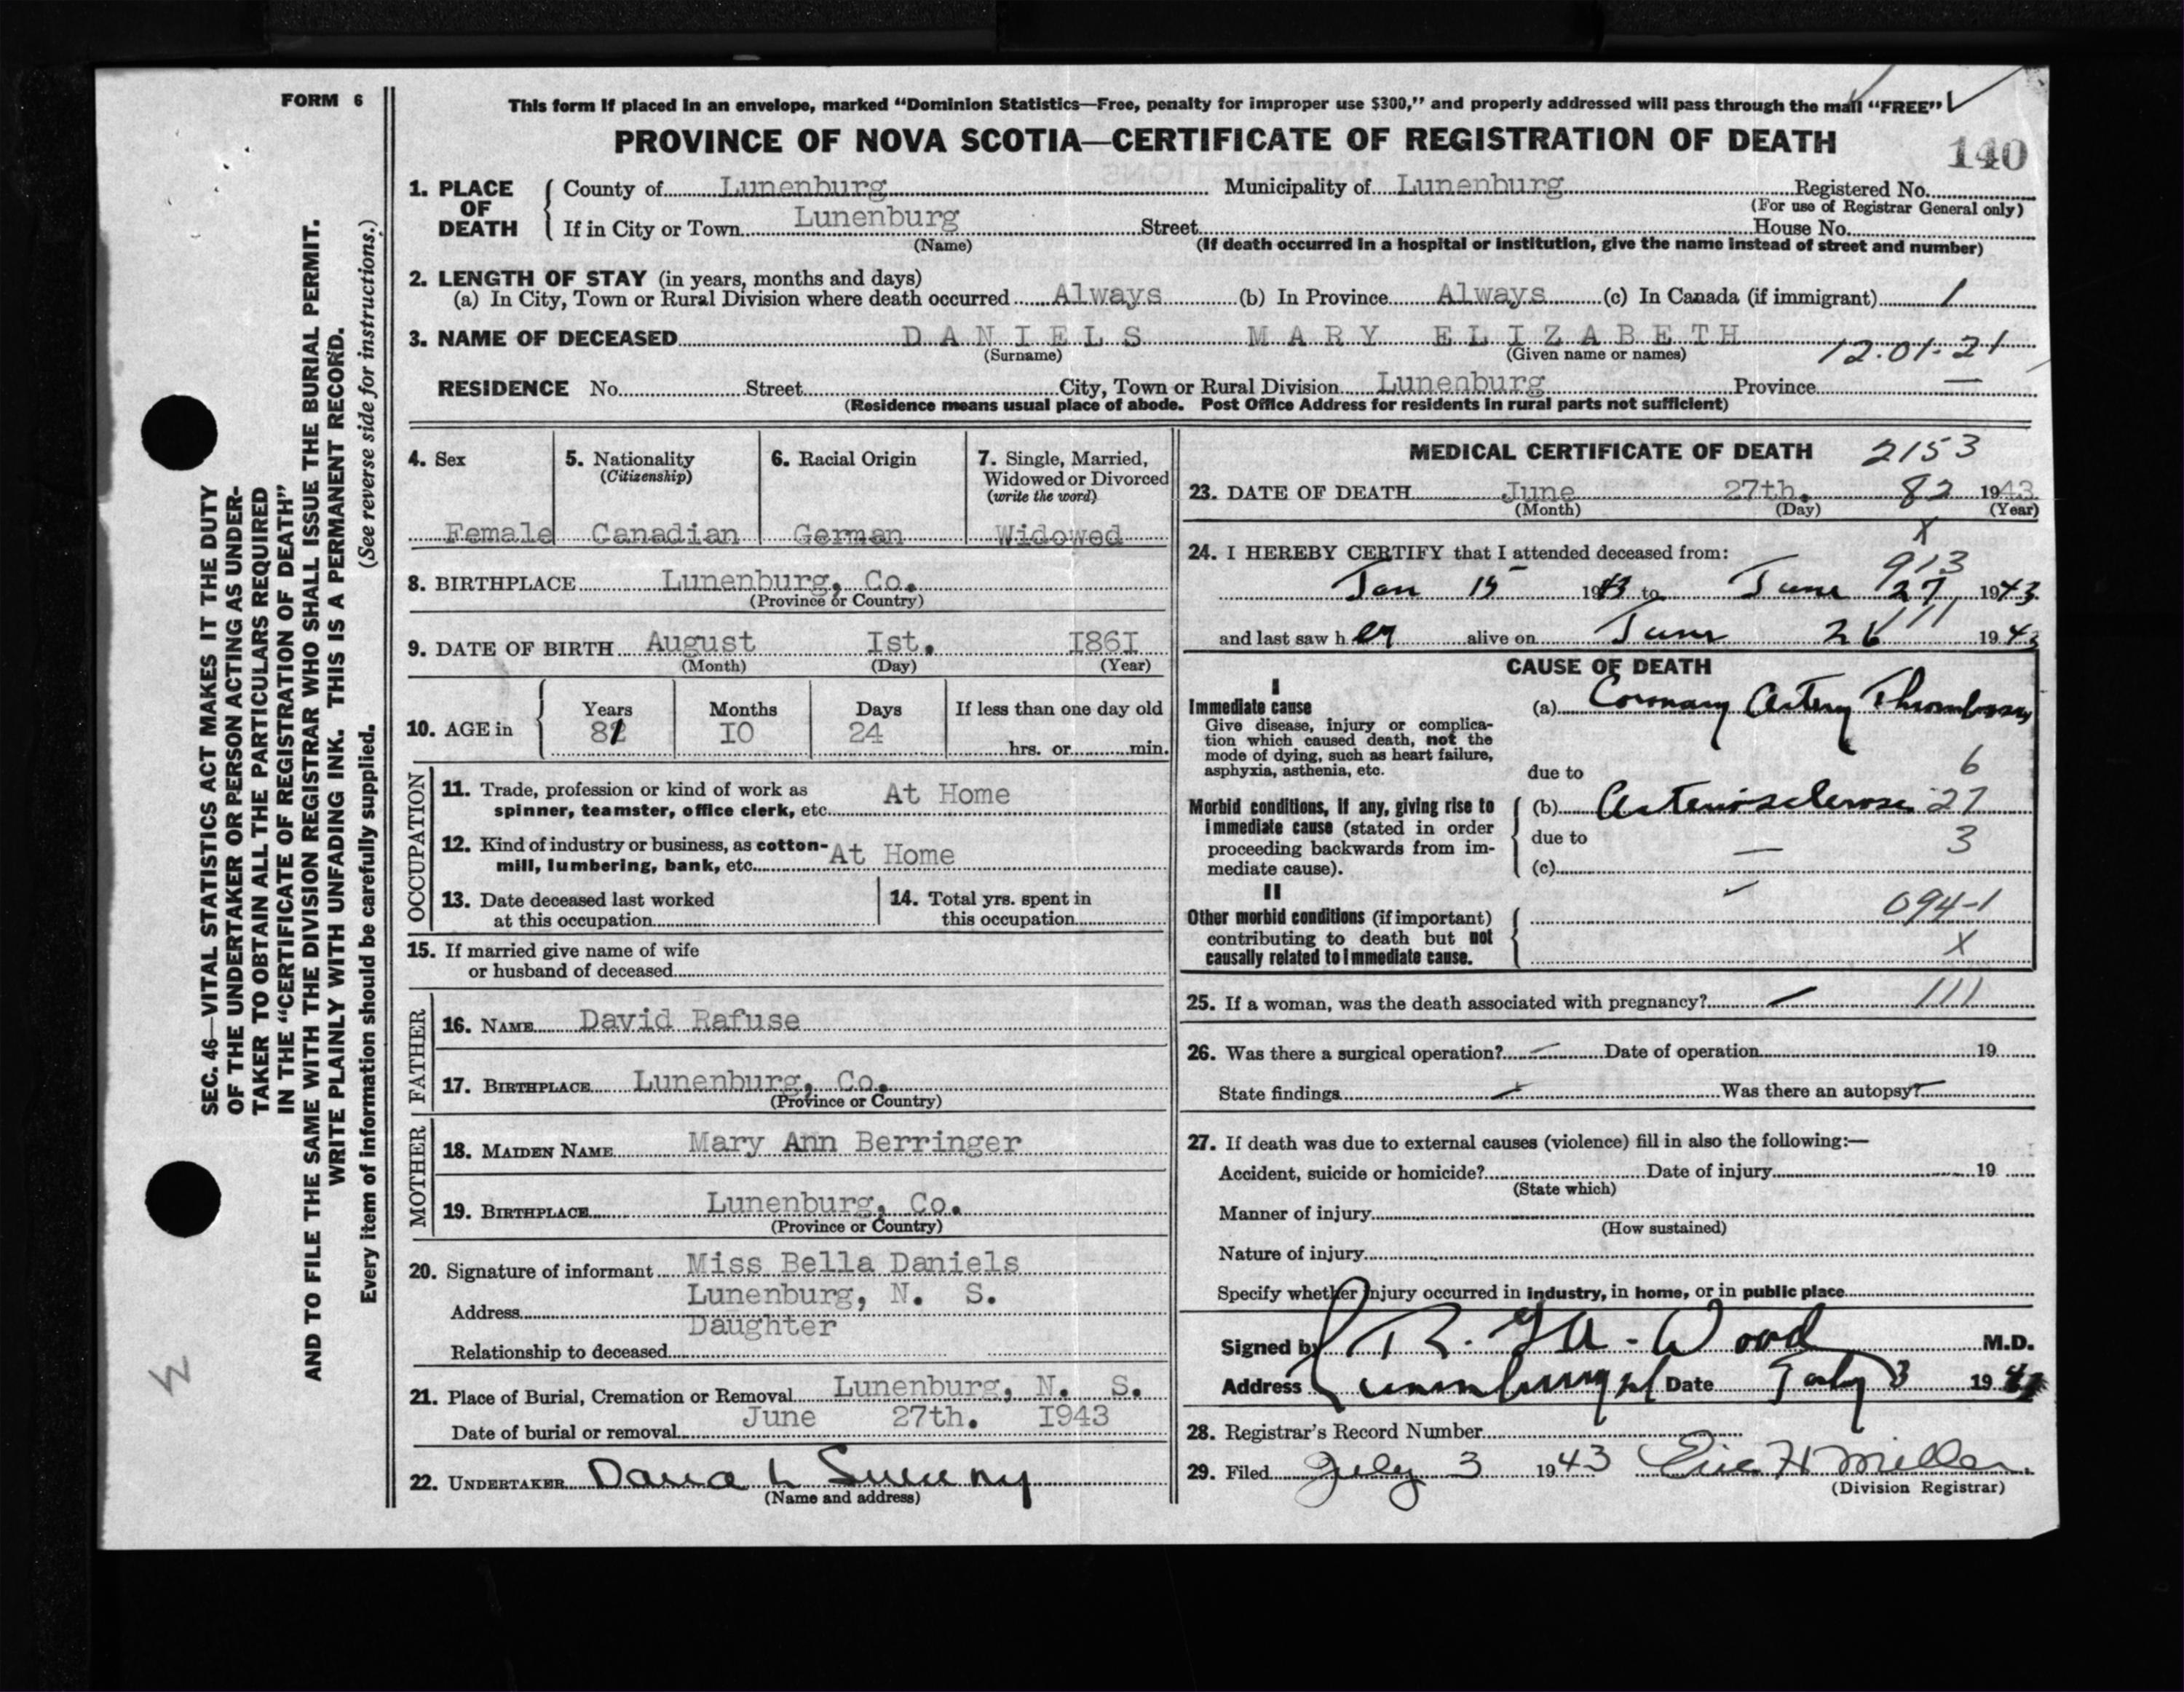 FORM 6
This form if placed in an envelope, marked “Dominion Statistics—Free, penalty for improper use $300,” and properly addressed will pass through the mail “FREE”
PROVINCE OF NOVA SCOTIA—CERTIFICATE OF REGISTRATION OF DEATH
140
1. PLACE OF DEATH
County of Lunenburg Municipality of Lunenburg Registered No.
(For use of Registrar General only)
If in City or Town Lunenburg Street House No.
(Name) (If death occurred in a hospital or institution, give the name instead of street and number)
2. LENGTH OF STAY (in years, months and days)
(a) In City, Town or Rural Division where death occurred Always (b) In Province Always (c) In Canada (if immigrant) /
3. NAME OF DECEASED DANIELS MARY ELIZABETH
(Surname) (Given name or names) 12.01-21
RESIDENCE No. Street City, Town or Rural Division Lunenburg Province —
(Residence means usual place of abode. Post Office Address for residents in rural parts not sufficient)
4. Sex
Female
5. Nationality
(Citizenship)
Canadian
6. Racial Origin
German
7. Single, Married,
Widowed or Divorced
(write the word)
Widowed
8. BIRTHPLACE Lunenburg, Co.
(Province or Country)
9. DATE OF BIRTH August Ist. I86I
(Month) (Day) (Year)
10. AGE in
Years Months Days If less than one day old
81 IO 24 hrs. or min.
OCCUPATION
11. Trade, profession or kind of work as
spinner, teamster, office clerk, etc. At Home
12. Kind of industry or business, as cotton-
mill, lumbering, bank, etc. At Home
13. Date deceased last worked
at this occupation
14. Total yrs. spent in
this occupation
15. If married give name of wife
or husband of deceased
FATHER
16. NAME David Rafuse
17. BIRTHPLACE Lunenburg, Co.
(Province or Country)
MOTHER
18. MAIDEN NAME Mary Ann Berringer
19. BIRTHPLACE Lunenburg, Co.
(Province or Country)
20. Signature of informant Miss Bella Daniels
Address Lunenburg, N. S.
Relationship to deceased Daughter
21. Place of Burial, Cremation or Removal Lunenburg, N. S.
Date of burial or removal June 27th. I943
22. UNDERTAKER
(Name and address)
MEDICAL CERTIFICATE OF DEATH 2153
23. DATE OF DEATH June 27th. 82 1943
(Month) (Day) (Year)
X
24. I HEREBY CERTIFY that I attended deceased from:
913
Jan 15 1943 to June 27, 1943
111
and last saw her alive on June 26 1943
CAUSE OF DEATH
I
Immediate cause
Give disease, injury or complica-
tion which caused death, not the
mode of dying, such as heart failure,
asphyxia, asthenia, etc.
(a) Coronary Artery Thrombosis
6
due to
Morbid conditions, if any, giving rise to
immediate cause (stated in order
proceeding backwards from im-
mediate cause).
(b) Arteriosclerosis 27
due to 3
(c) —
II
Other morbid conditions (if important)
contributing to death but not
causally related to immediate cause.
094-1
X
25. If a woman, was the death associated with pregnancy? 111
26. Was there a surgical operation? Date of operation 19
State findings Was there an autopsy?
27. If death was due to external causes (violence) fill in also the following:—
Accident, suicide or homicide? Date of injury 19
(State which)
Manner of injury
(How sustained)
Nature of injury
Specify whether injury occurred in industry, in home, or in public place
Signed by Wood M.D.
Address Date July 3 19
28. Registrar's Record Number
29. Filed July 3 1943 H Miller
(Division Registrar)
SEC. 46—VITAL STATISTICS ACT MAKES IT THE DUTY
OF THE UNDERTAKER OR PERSON ACTING AS UNDER-
TAKER TO OBTAIN ALL THE PARTICULARS REQUIRED
IN THE “CERTIFICATE OF REGISTRATION OF DEATH”
AND TO FILE THE SAME WITH THE DIVISION REGISTRAR WHO SHALL ISSUE THE BURIAL PERMIT.
WRITE PLAINLY WITH UNFADING INK. THIS IS A PERMANENT RECORD.
Every item of information should be carefully supplied. (See reverse side for instructions.)